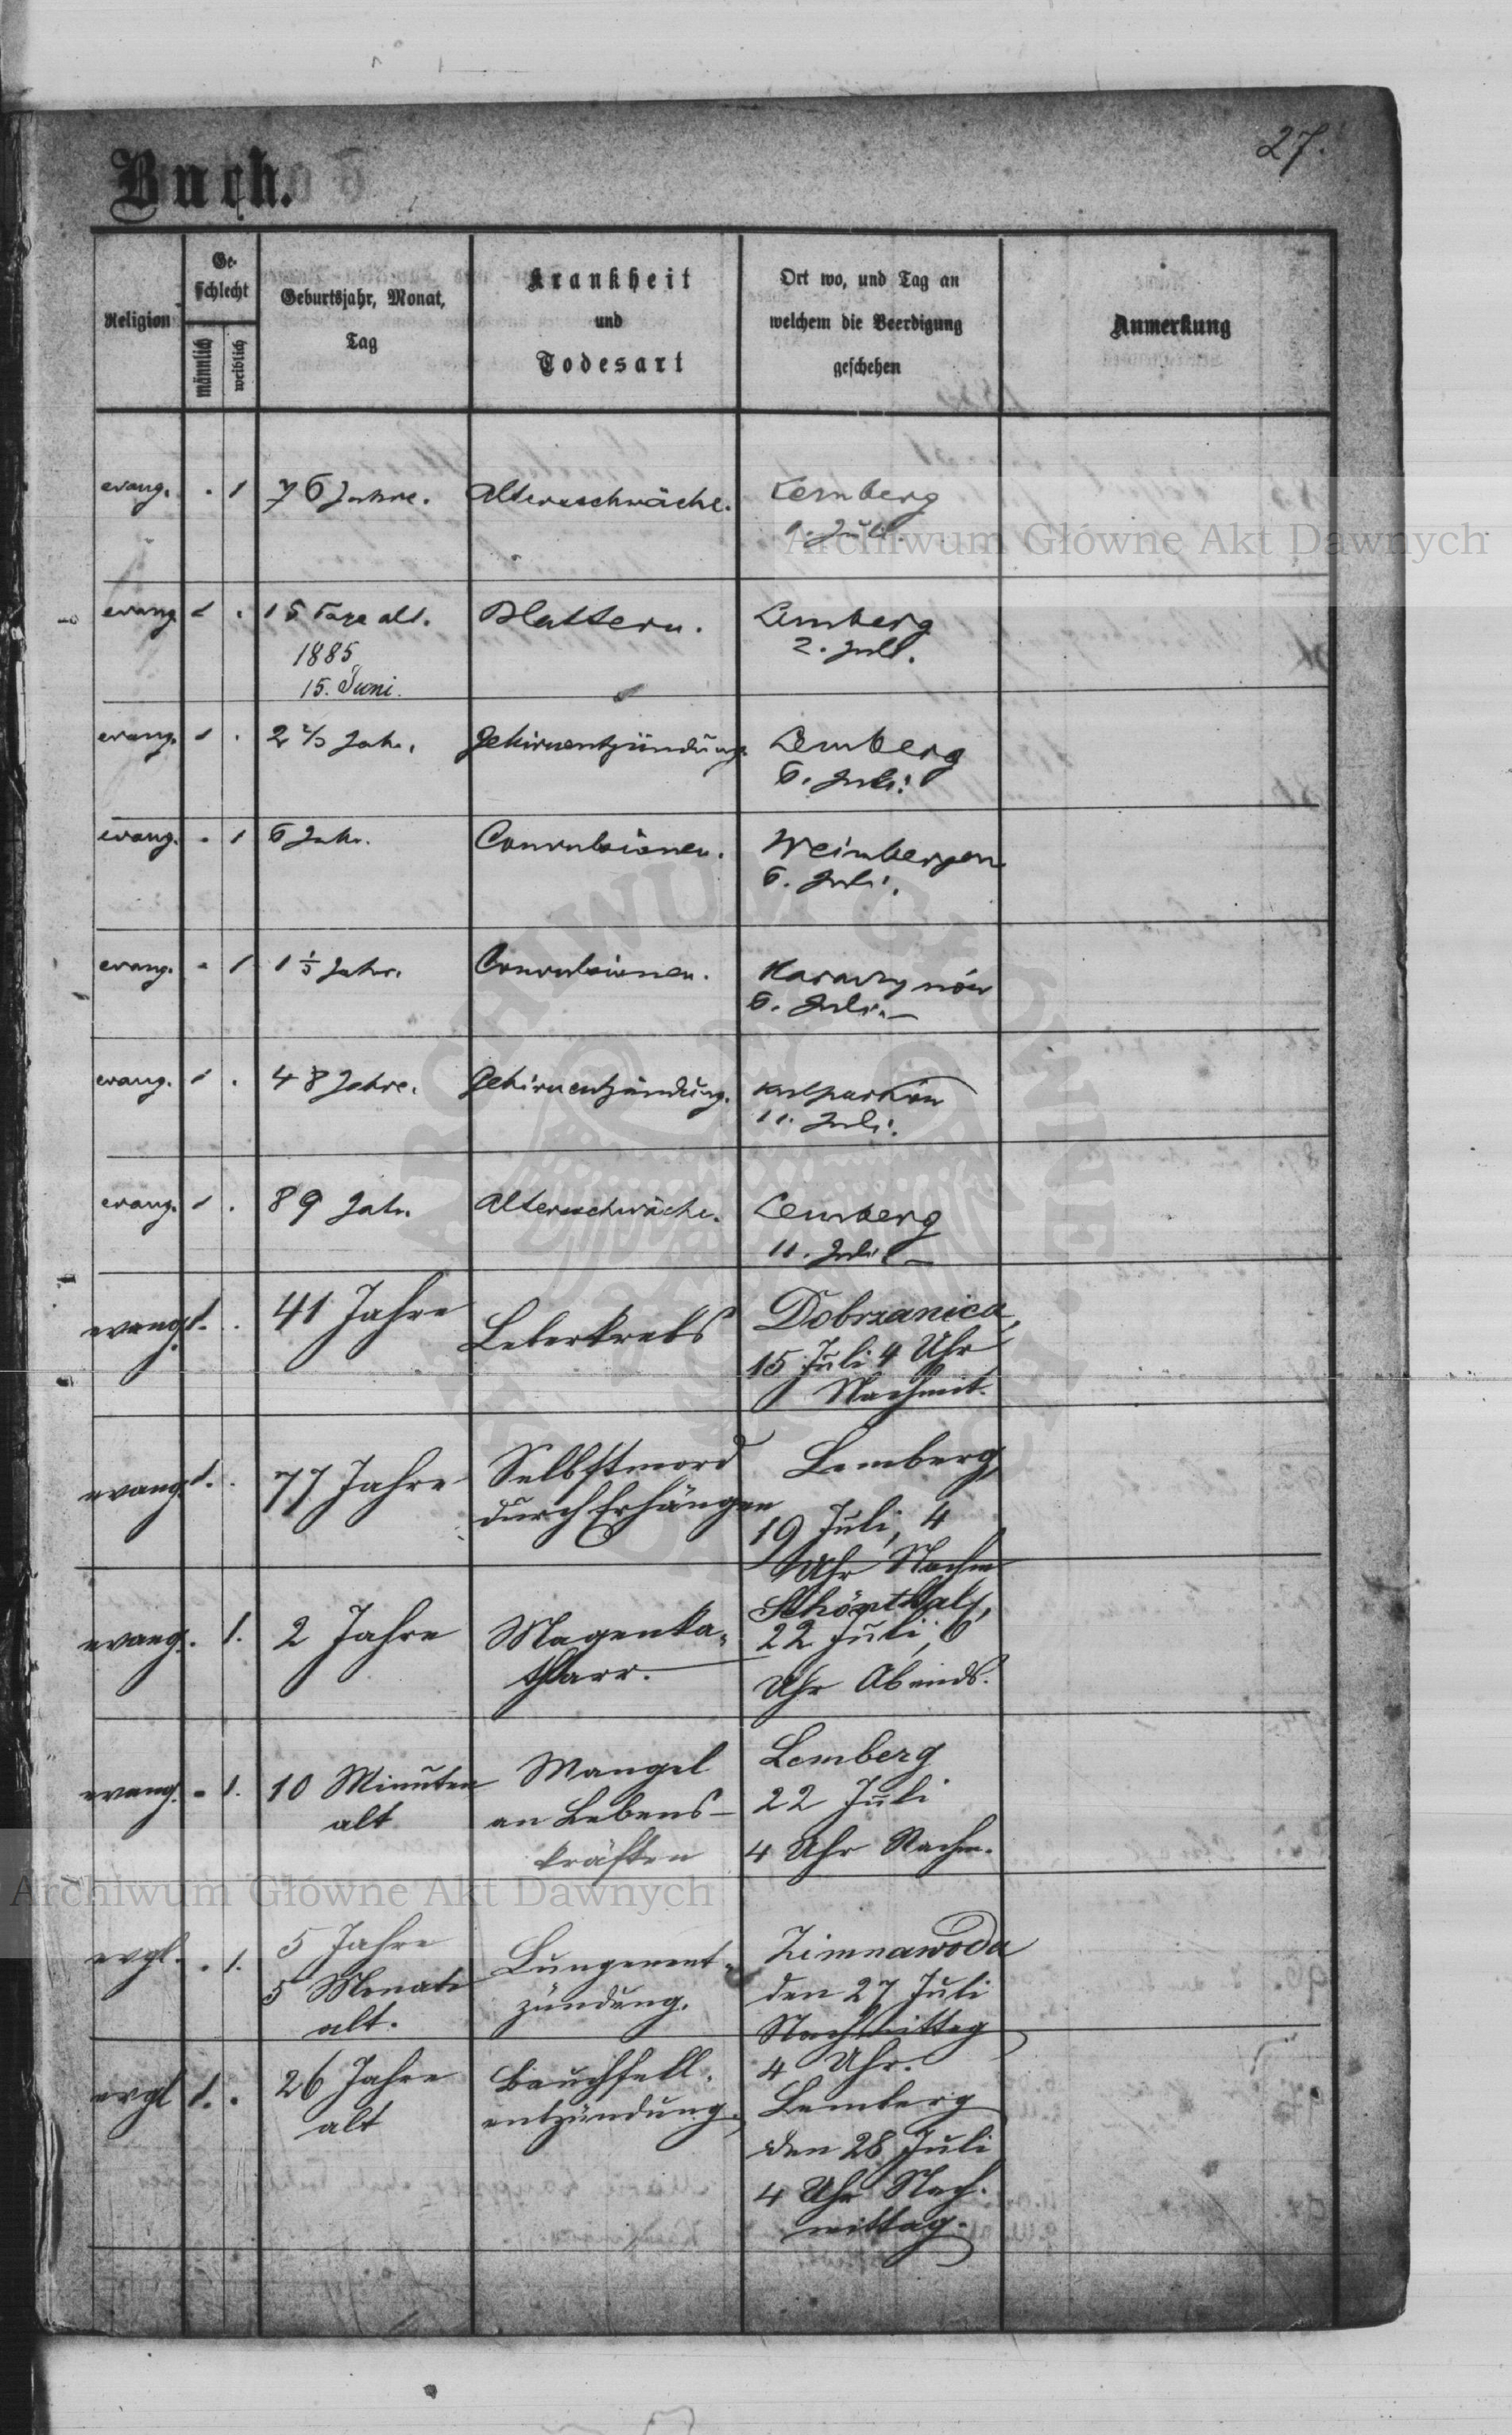 27.
Buch.
Religion
Ge-
schlecht
männlich
weiblich
Geburtsjahr, Monat,
Tag
Krankheit
und
Todesart
Ort wo, und Tag an
welchem die Beerdigung
geschehen
Anmerkung
evang. . 1 76 Jahre. Altersschwäche. Lemberg
1. Juli.
evang. 1 . 15 Tage alt. Blattern. Lemberg
1885 2. Juli.
15. Juni.
evang. 1 . 2 2/3 Jahr. Gehirnentzündung. Lemberg
6. Juli.
evang. . 1 6 Jahr. Convulsionen. Weinbergen
6. Juli.
evang. . 1 1 1/3 Jahr. Convulsionen.
6. Juli.
evang. 1 . 48 Jahre. Gehirnentzündung. Kulparków
11. Juli.
evang. 1 . 89 Jahr. Altersschwäche. Lemberg
11. Juli
evang. 1. . 41 Jahre Leberkrebs Dobrzanica,
15 Juli 4 Uhr
Nachmit.
evang. 1. . 77 Jahre Selbstmord Lemberg
durch Erhängen 19 Juli, 4
Uhr Nachm
evang. 1. 2 Jahre Magenka- Schönthal,
tharr. 22 Juli, 6
Uhr Abends.
evang. - 1. 10 Minuten Mangel Lemberg
alt an Lebens- 22 Juli
kräften 4 Uhr Nachm.
evgl. . 1. 5 Jahre Lungenent- Zimnawoda
5 Monate zündung. den 27 Juli
alt. Nachmittag
4 Uhr.
evgl 1. . 26 Jahre Bauchfell- Lemberg
alt entzündung. den 28 Juli
4 Uhr Nach-
mittag.
Archiwum Główne Akt Dawnych
Archiwum Główne Akt Dawnych